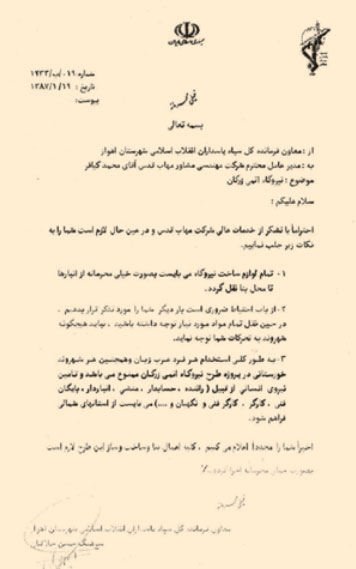 جمهوری اسلامی ایران
شماره ۰۱۹/ب/۱۹۳۳
تاریخ : ۱۳۸۷/۱/۱۹
پیوست:
خیلی محرمانه
بسمه تعالی
از : معاون فرمانده کل سپاه پاسداران انقلاب اسلامی شهرستان اهواز
به : مدیر عامل محترم شرکت مهندسی مشاور مهاب قدس آقای محمد کیافر
موضوع : نیروگاه اتمی زرگان
سلام علیکم :
احتراماً با تشکر از خدمات عالی شرکت مهاب قدس و در عین حال لازم است شما را به
نکات زیر جلب نماییم.
۱- تمام لوازم ساخت نیروگاه می بایست بصورت خیلی محرمانه از انبارها
تا محل بنا نقل گردد.
۲- از باب احتیاط ضروری است بار دیگر شما را مورد تذکر قرار بدهیم ,
در حین نقل تمام مواد مورد نیاز توجه داشته باشید , نباید هیچگونه
شهروند به تحرکات شما توجه نماید.
۳- به طور کلی استخدام هر فرد عرب زبان وهمچنین هر شهروند
خوزستانی در پروژه طرح نیروگاه اتمی زرگان ممنوع می باشد و تامین
نیروی انسانی از قبیل ( راننده , حسابدار , منشی , انباردار , بایگان
فنی , کارگر , کارگر فنی و نگهبان و ....) می بایست از استانهای شمالی
فراهم شود.
اخیراً شما را مجدداً اعلام می کنیم , کلیه اعمال بنا وساخت وساز این طرح لازم است
بصورت خیلی محرمانه اجرا گردد.
خیلی محرمانه
معاون فرمانده کل سپاه پاسداران انقلاب اسلامی شهرستان اهواز
سرهنگ حسن